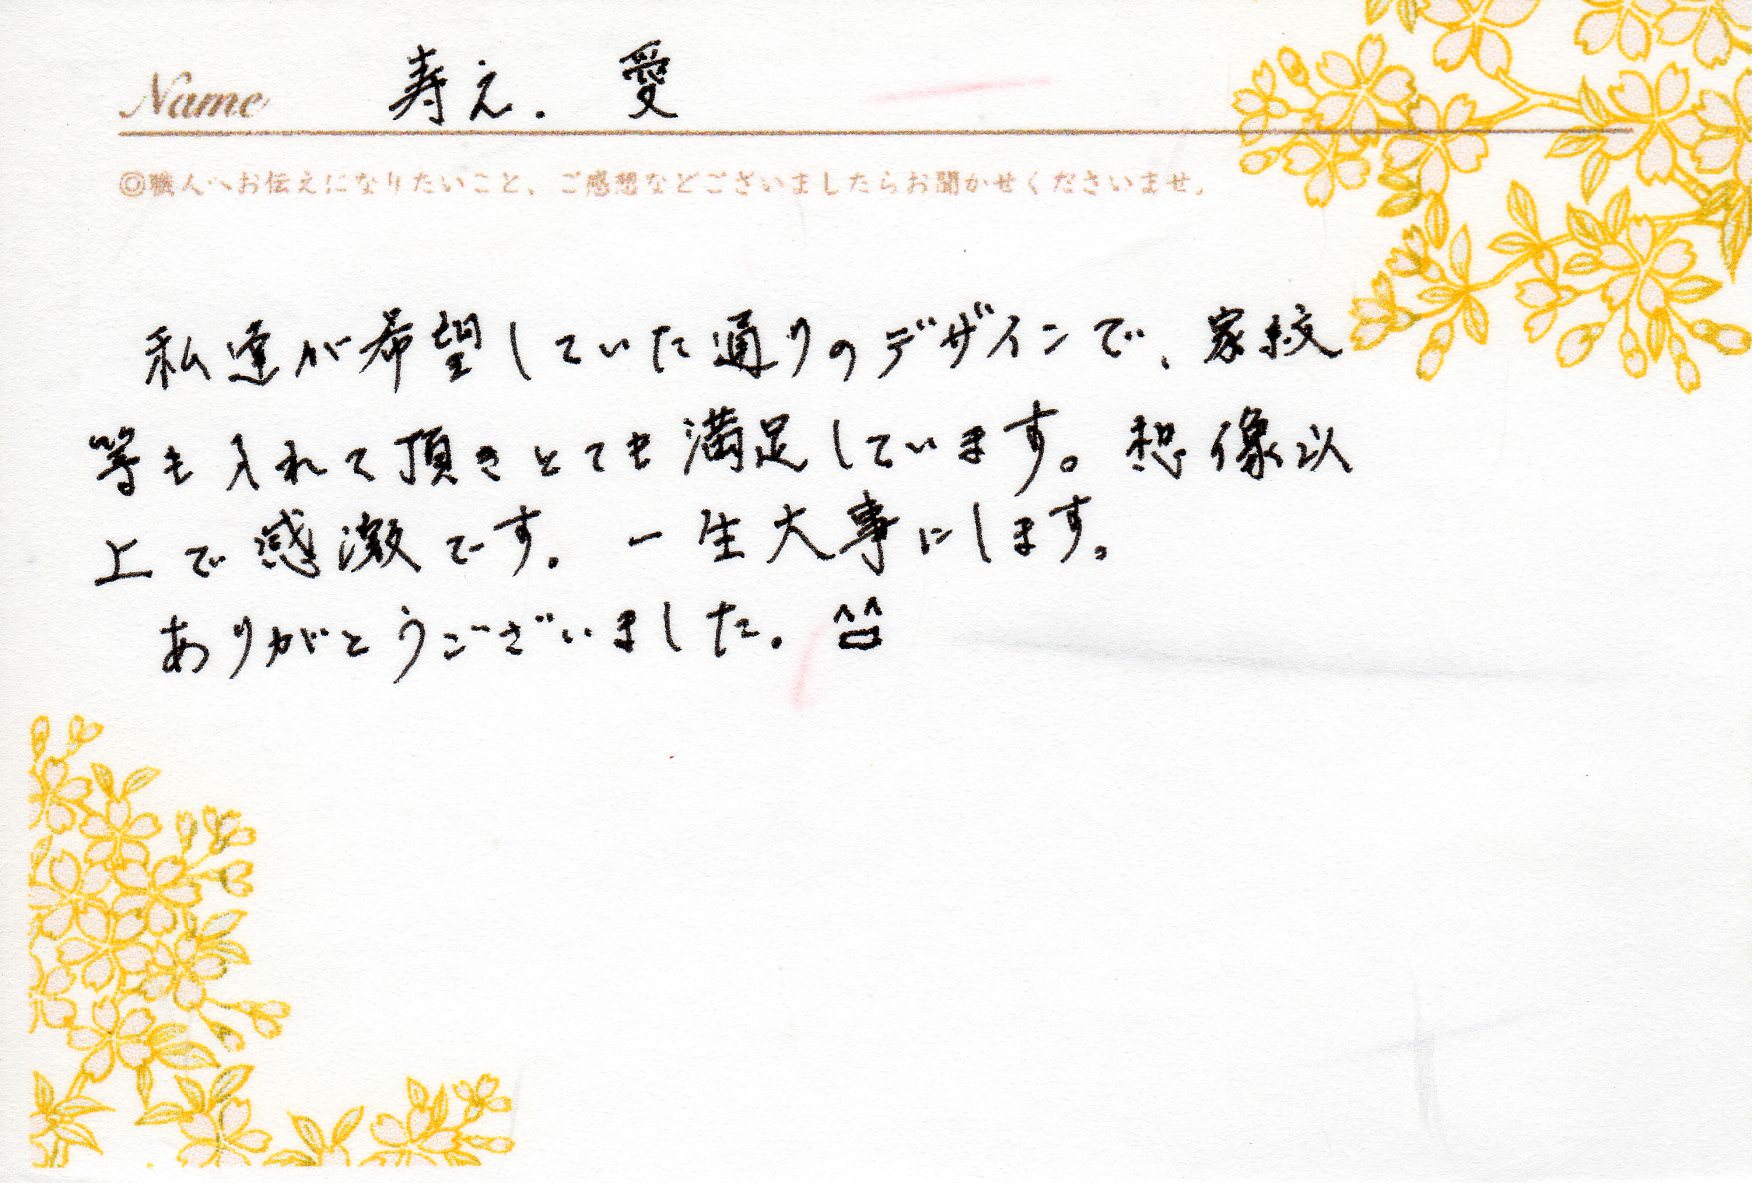 Name 寿え. 愛
◎職人へお伝えになりたいこと、ご感想などございましたらお聞かせくださいませ。
私達が希望していた通りのデザインで、家紋
等も入れて頂きとても満足しています。想像以
上で感激です。一生大事にします。
ありがとうございました。^^